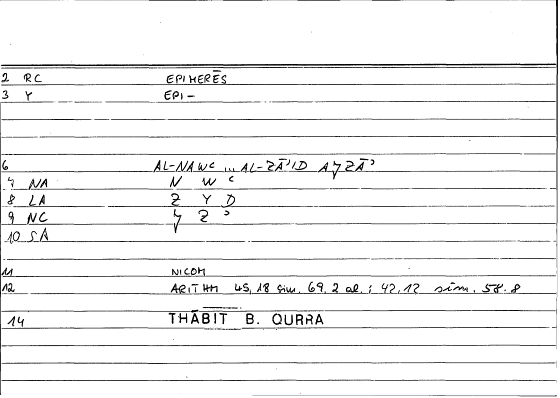 2 RC EPIMERĒS
3 Y EPI-
6 AL-NAWʿ ... AL-ZĀʾID AǧZĀʾ
7 NA N W ʿ
8 LA Z Y D
9 NC ǧ Z ʾ
10 SA
11 NICOM
12 ARITHM 45,18 sim. 69,2 al.; 42,12 sim. 58.8
14 THĀBIT B. QURRA